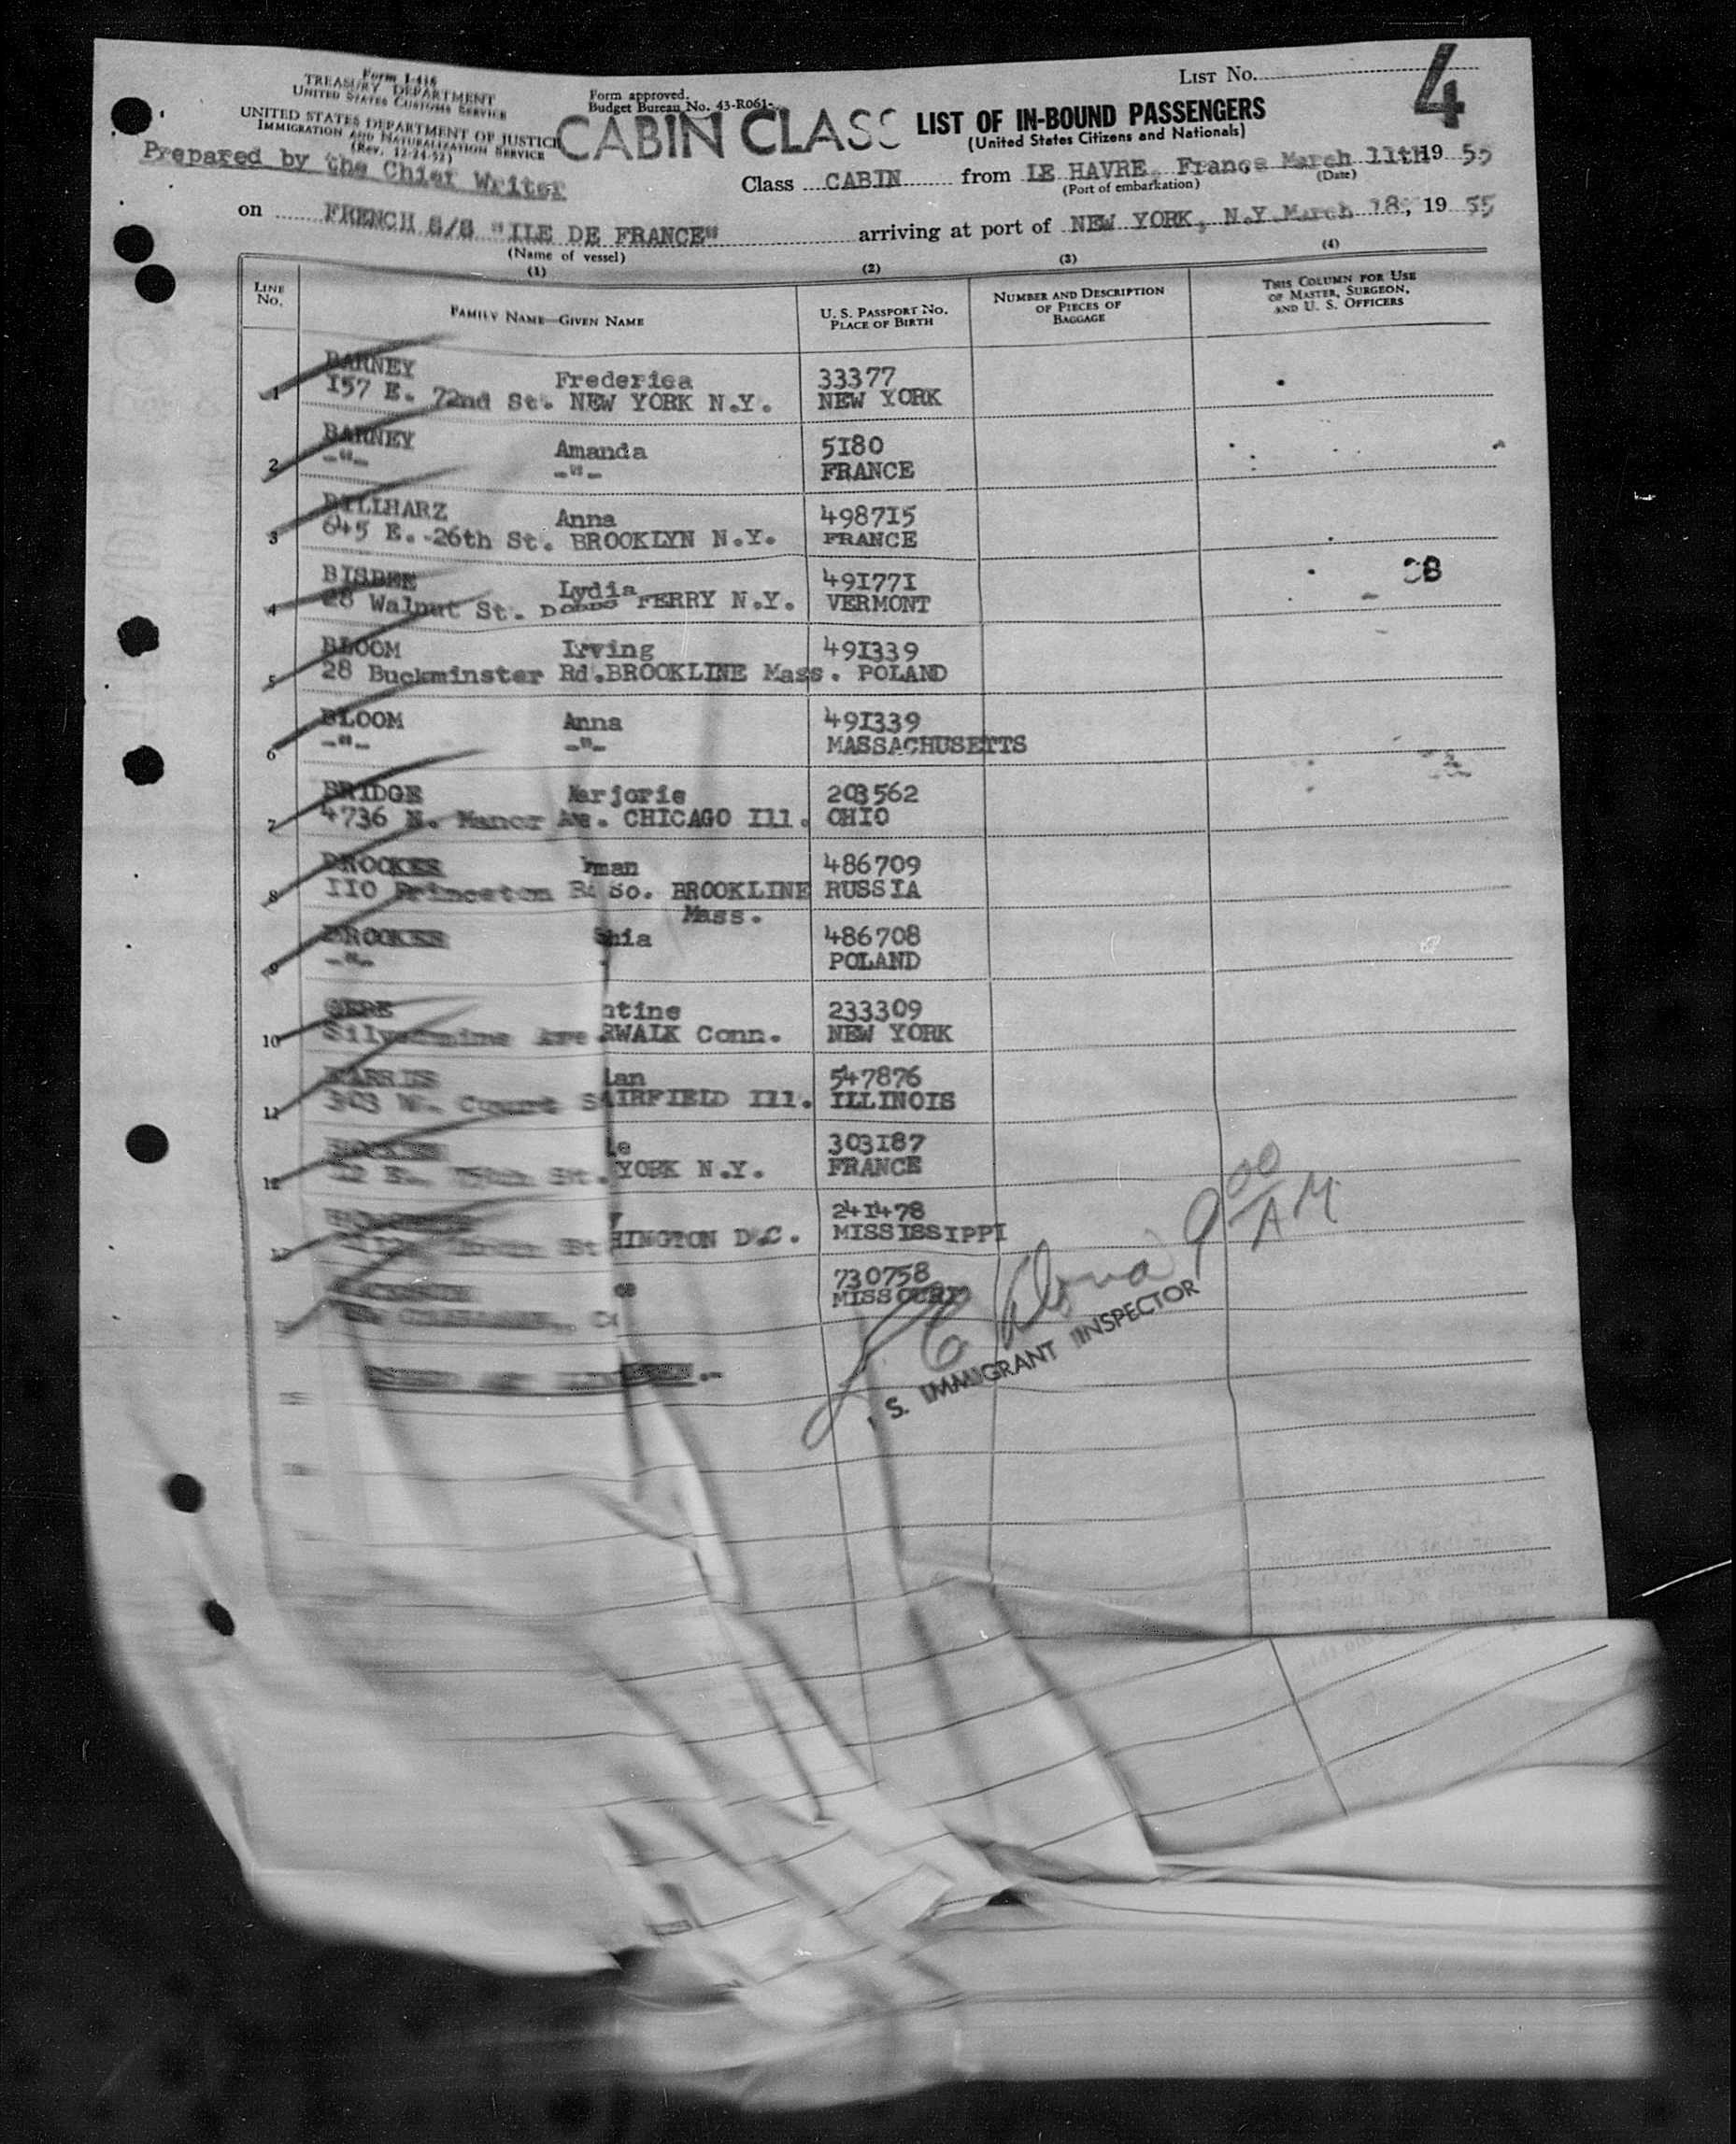 Form I-416
TREASURY DEPARTMENT
UNITED STATES CUSTOMS SERVICE
UNITED STATES DEPARTMENT OF JUSTICE
IMMIGRATION AND NATURALIZATION SERVICE
(Rev. 12-24-52)
Prepared by the Chief Writer
Form approved.
Budget Bureau No. 43-R061-
CABIN CLASS
LIST NO.
4
LIST OF IN-BOUND PASSENGERS
(United States Citizens and Nationals)
Class CABIN from LE HAVRE, France March 11th 19 55
(Port of embarkation) (Date)
on FRENCH S/S "ILE DE FRANCE" arriving at port of NEW YORK, N.Y. March 18, 19 55
(Name of vessel)
(1) (2) (3) (4)
LINE NO.
FAMILY NAME—GIVEN NAME
U. S. PASSPORT NO.
PLACE OF BIRTH
NUMBER AND DESCRIPTION
OF PIECES OF
BAGGAGE
THIS COLUMN FOR USE
OF MASTER, SURGEON,
AND U. S. OFFICERS
BARNEY Frederica 33377
1 157 E. 72nd St. NEW YORK N.Y. NEW YORK
BARNEY Amanda 5180
2 -"- -"- FRANCE
BILLHARZ Anna 498715
3 645 E. 26th St. BROOKLYN N.Y. FRANCE
BISBEE Lydia 491771
4 28 Walnut St. DOBBS FERRY N.Y. VERMONT
BLOOM Irving 491339
5 28 Buckminster Rd. BROOKLINE Mass. POLAND
BLOOM Anna 491339
6 -"- -"- MASSACHUSETTS
BRIDGE Marjorie 203562
7 4736 N. Manor Ave. CHICAGO Ill. OHIO
man 486709
8 110 Princeton So. BROOKLINE RUSSIA
Mass.
hia 486708
9 -"- POLAND
GERE ntine 233309
10 Silvermine Ave RWALK Conn. NEW YORK
HARRIS ian 547876
11 303 W. Court S AIRFIELD Ill. ILLINOIS
le 303187
12 St. YORK N.Y. FRANCE
241478
HINGTON D.C. MISSISSIPPI
ce 730758
MISSOURI
9 00 AM
S. IMMIGRANT INSPECTOR